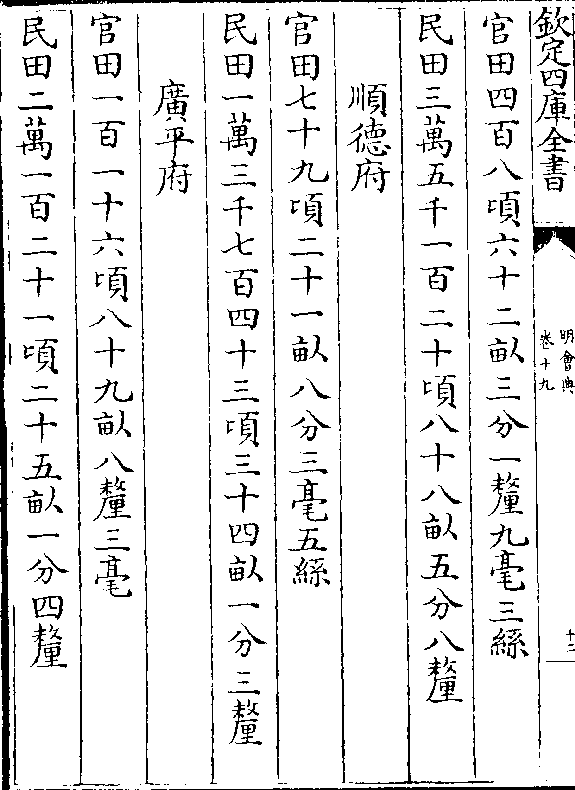 欽定四庫全書
明會典
卷十九
十二
官田四百八頃六十二畝三分一釐九毫三絲
民田三萬五千一百二十頃八十八畝五分八釐
順德府
官田七十九頃二十一畝八分三毫五絲
民田一萬三千七百四十三頃三十四畝一分三釐
廣平府
官田一百一十六頃八十九畝八釐三毫
民田二萬一百二十一頃二十五畝一分四釐